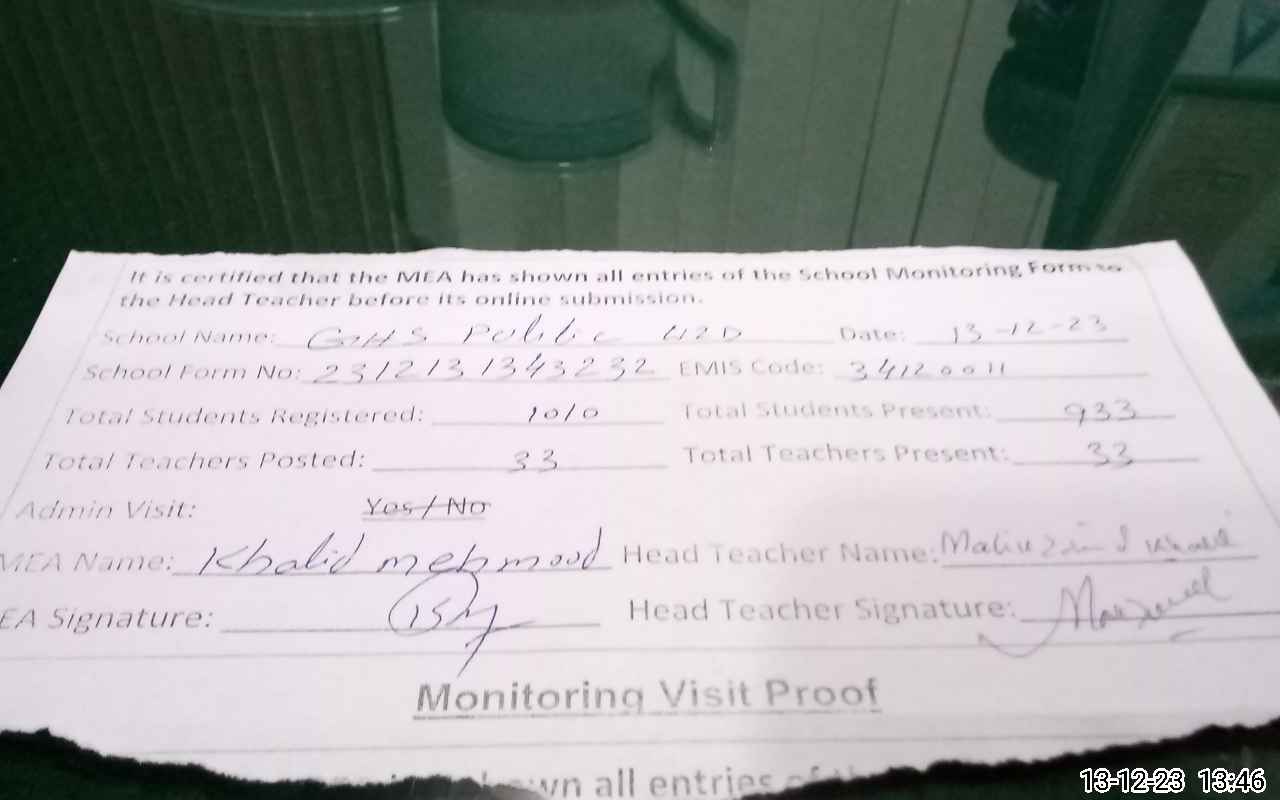 It is certified that the MEA has shown all entries of the School Monitoring Form to
the Head Teacher before its online submission.
School Name: GHS Public WZD Date: 13-12-23
School Form No: 2312131343232 EMIS Code: 34120011
Total Students Registered: 1010 Total Students Present: 933
Total Teachers Posted: 33 Total Teachers Present: 33
Admin Visit: Yes/No
MEA Name: Khalid mehmood Head Teacher Name:
EA Signature: Head Teacher Signature:
Monitoring Visit Proof
wn all entries
13-12-23 13:46